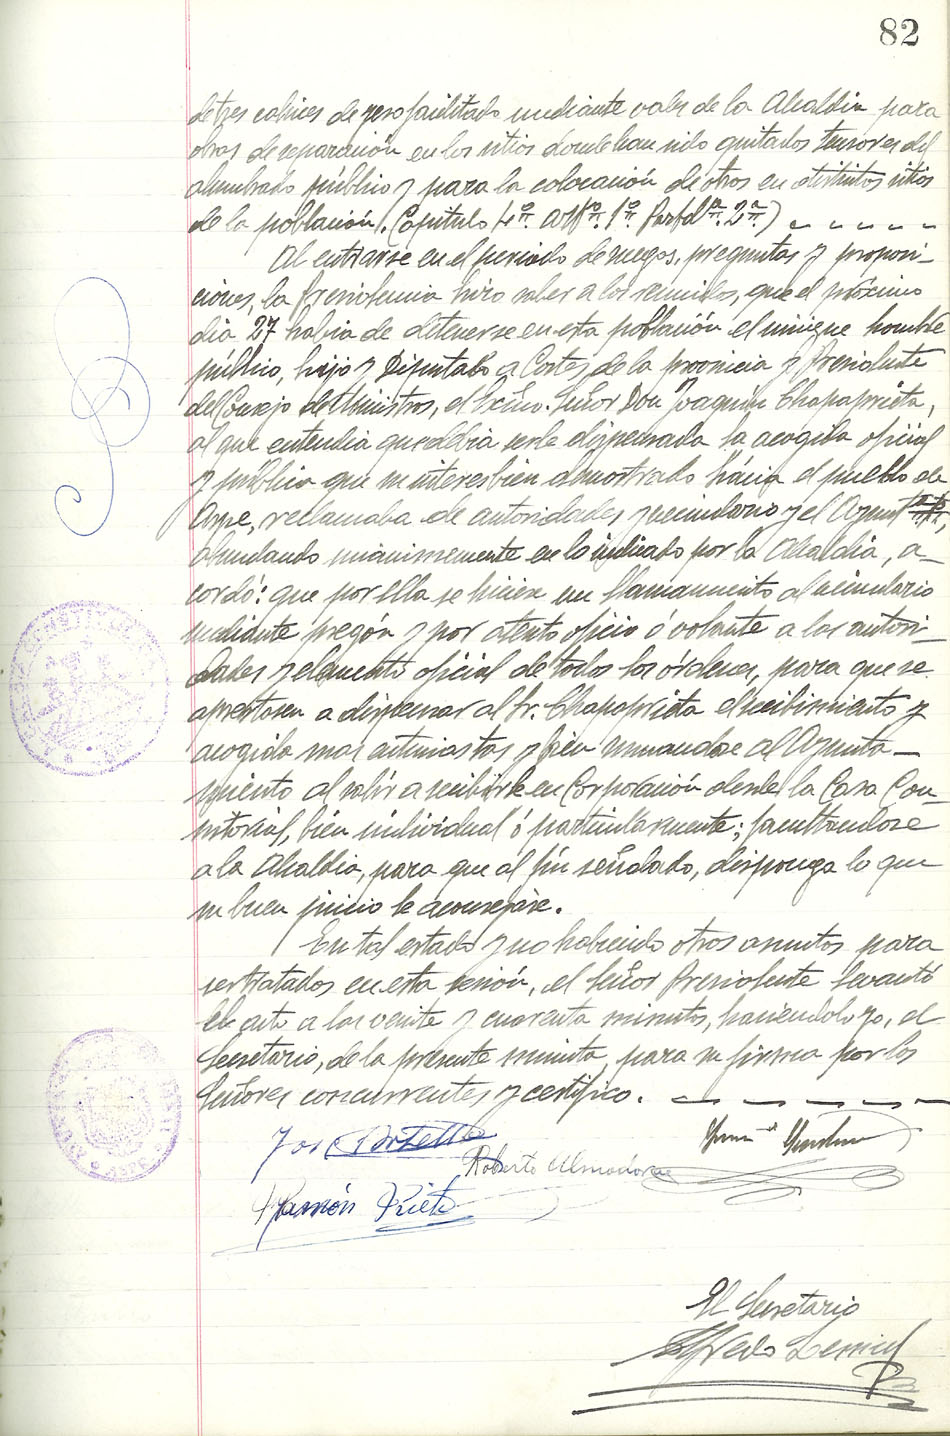 82
de tres cahices de yeso facilitado mediante vales de la Alcaldia para
obras de reparación en los sitios donde han sido quitados tensores del
alumbrado público y para la colocación de otros en distintos sitios
de la población. (Capitulo 4º. artº. 1º. Partdª. 2ª)
Al entrarse en el periodo de ruegos, preguntas y proposi-
ciones, la Presidencia hizo saber a los reunidos, que el próximo
dia 27 habia de detenerse en esta población el insigne hombre
público, hijo y Diputado a Cortes de la provincia y Presidente
del Consejo de Ministros, el Excmo. Señor Don Joaquín Chapaprieta,
al que entendia que debia serle dispensada la acogida oficial
y pública que su interes bien demostrado hácia el pueblo de
Aspe, reclamaba de autoridades y vecindario y el Ayuntº,
abundando unanimemente en lo indicado por la Alcaldia, a-
cordó: que por ella se hiciese un llamamiento al vecindario
mediante pregón y por atento oficio ó volante a las autori-
dades y elemento oficial de todos los órdenes, para que se
aprestasen a dispensar al Sr. Chapaprieta el recibimiento y
acogida mas entusiastas y bien sumandose al Ayunta-
miento al salir a recibirle en Corporación desde la Casa Con-
sistorial, bien individual ó particularmente; facultandose
a la Alcaldia, para que al fin señalado, disponga lo que
su buen juicio le aconsejase.
En tal estado y no habiendo otros asuntos para
ser tratados en esta sesión, el Señor Presidente levantó
el acto a las veinte y cuarenta minutos, haciéndolo yo, el
Secretario, de la presente minuta, para su firma por los
Señores concurrentes y certifico.
José Botella
Roberto Almodovar
Ramón Prieto
El Secretario
Alfredo